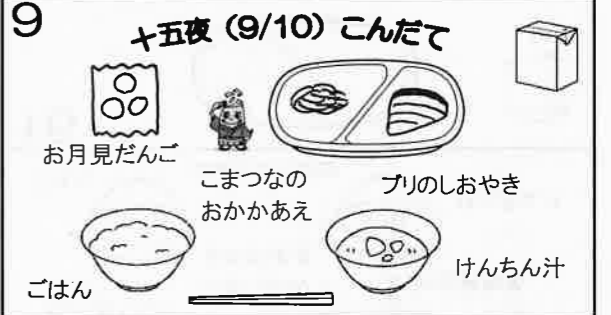 9
十五夜（9/10）こんだて
お月見だんご
こまつなの
おかかあえ
ブリのしおやき
ごはん
けんちん汁